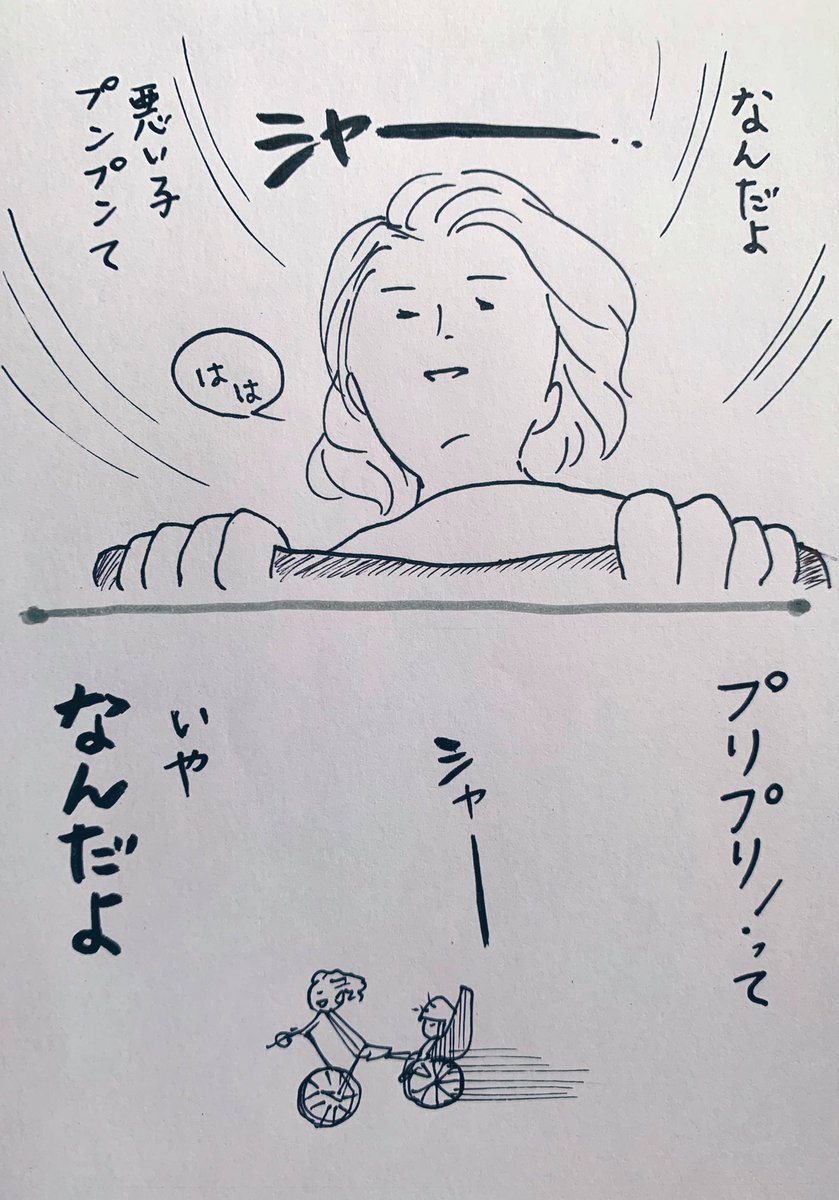 なんだよ
シャー‥
悪い子
プンプンて
はは
プリプリ！って
シャー
いや
なんだよ